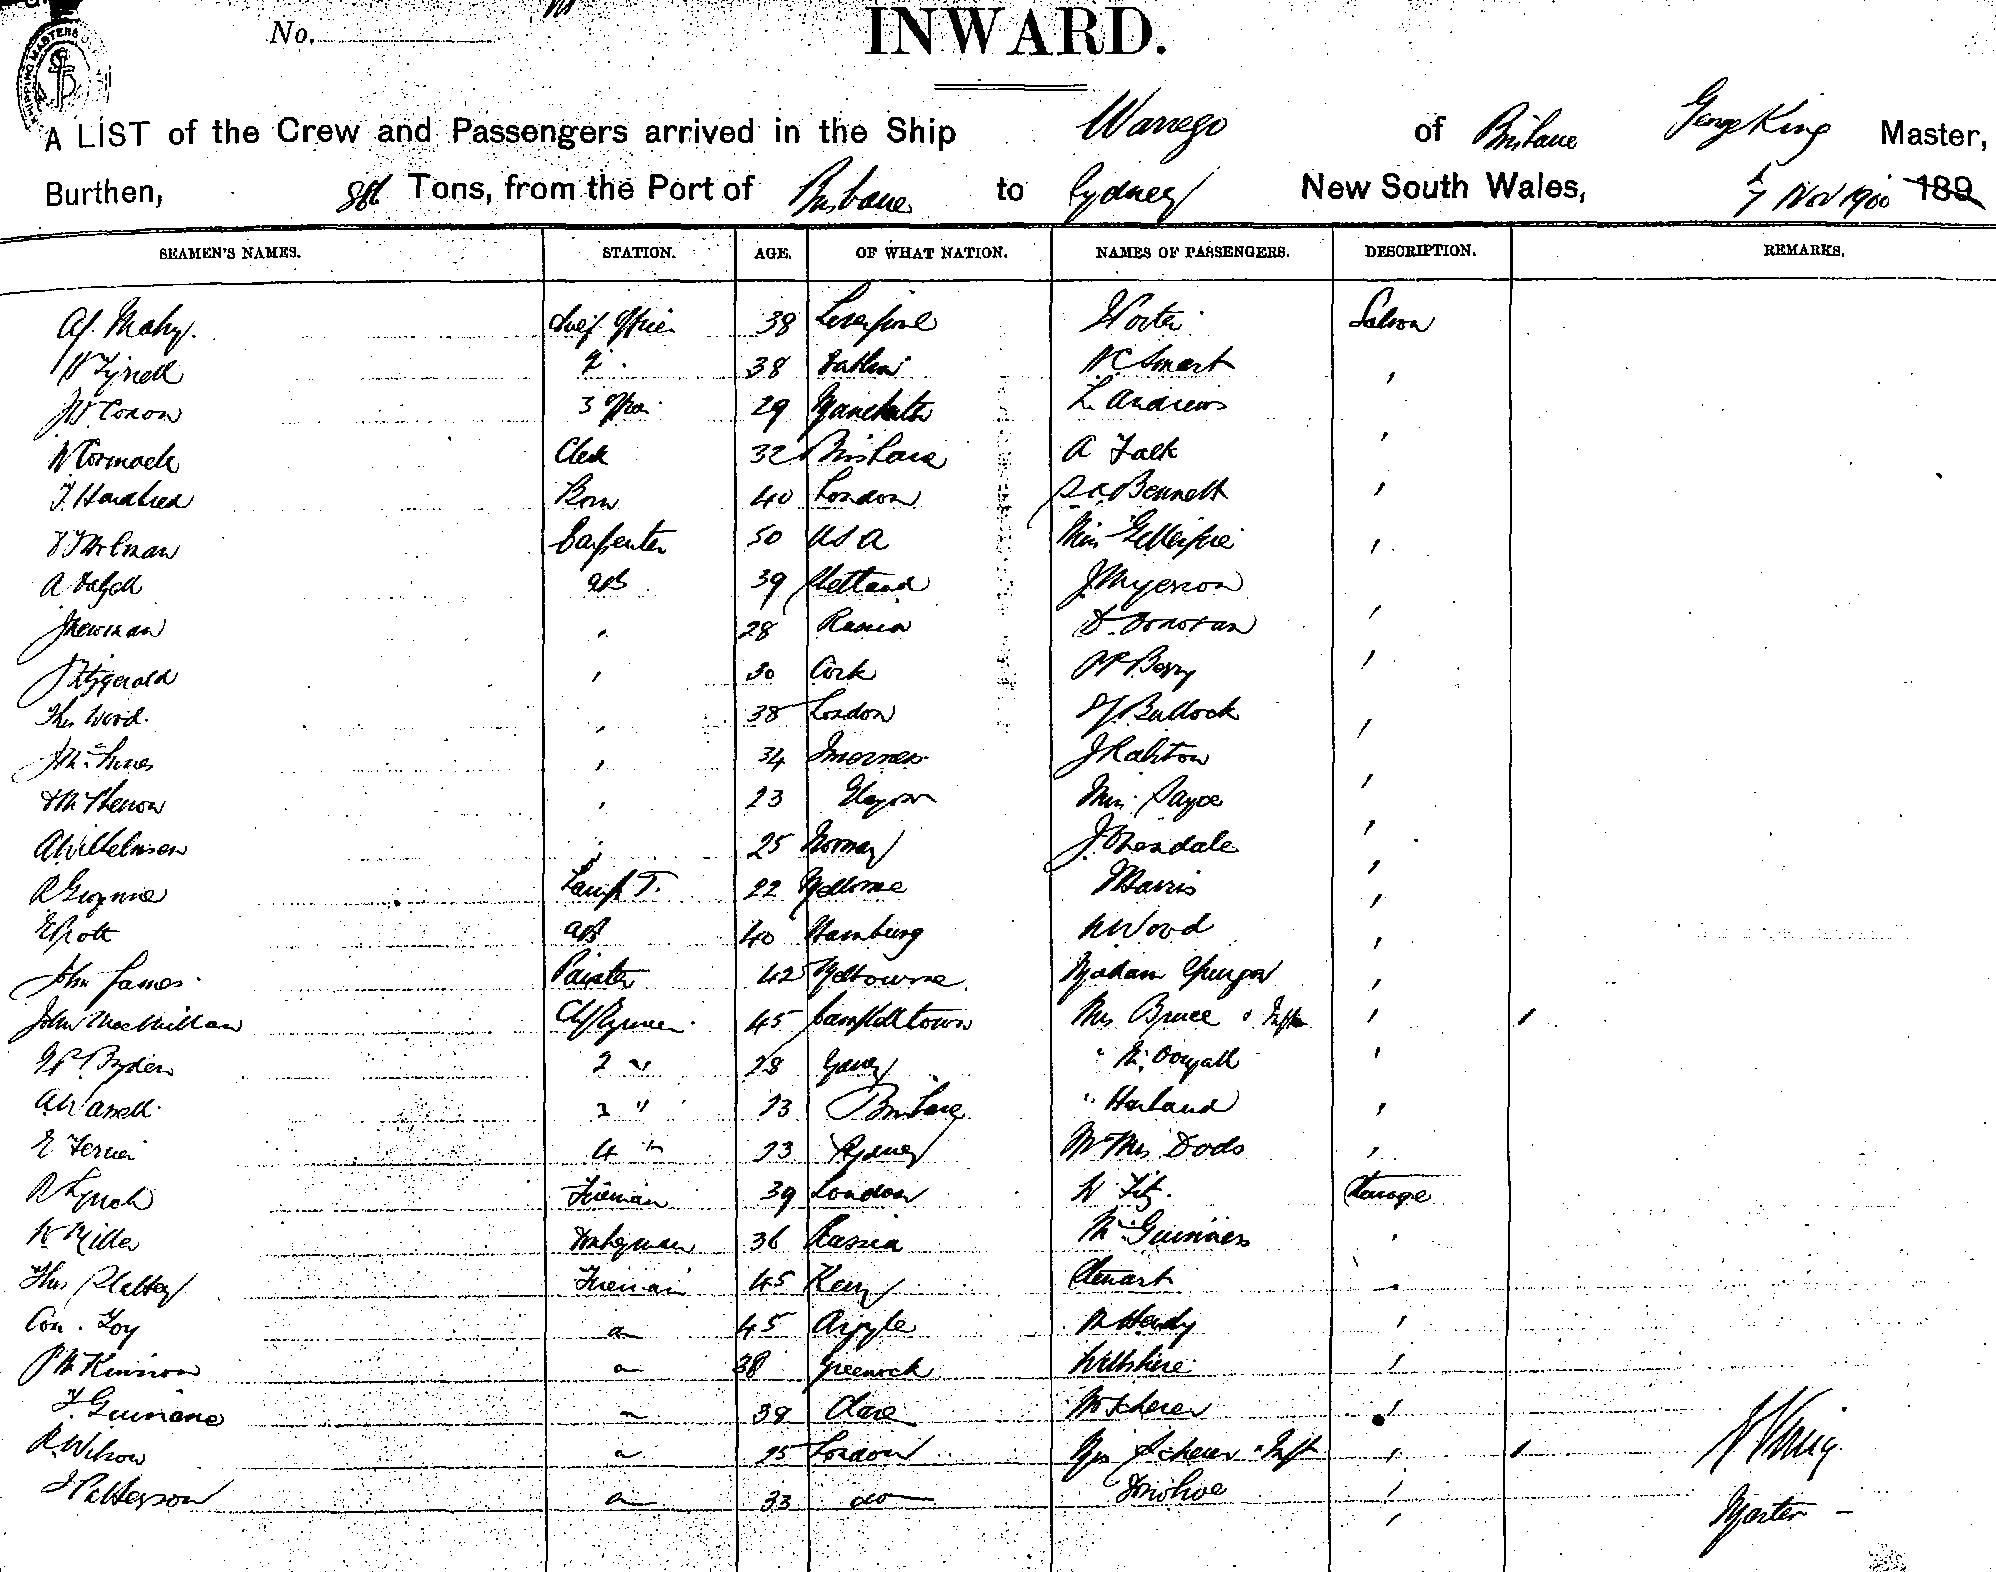 No.
INWARD.
A LIST of the Crew and Passengers arrived in the Ship Warrego of Brisbane George King Master,
Burthen, Tons, from the Port of Brisbane to Sydney New South Wales, 7 Nov 1900 189
SEAMEN'S NAMES. STATION. AGE. OF WHAT NATION. NAMES OF PASSENGERS. DESCRIPTION. REMARKS.
Mahy. Chief Officer 38 Liverpool Porter Saloon
Tyrrell 2 38 Dublin Smart "
29 Manchester L. Andrews
W Cormack Clerk 32 Brisbane A Falk "
Bosn 40 London Bennett "
Carpenter 50 USA Miss Gillespie "
A Dalzell AB 39 Shetland J. Myerson
J Newman " 28 Russia D. Donovan "
J Fitzgerald " 30 Cork Berry "
Thos Wood. " 38 London Bullock "
J McInnes " 34 Inverness J Ralston
" 23 Glasgow Miss Payce "
A Wilhelmsen " 25 Norway J. "
Lamp T. 22 Melbourne Harris "
AB 40 Hamburg Wood "
John James Painter 42 Melbourne Madam "
John MacMillan Ch Engineer 45 Campbeltown Mrs Bruce & Inft "
2 " 28 "
3 " 23 Brisbane " Harland "
4 " 23 Sydney Mr & Mrs Dods "
R Lynch Fireman 39 London W Fitz. Steerage
Miller Donkeyman 36 Russia McGuinness "
Thos Slattery Fireman 45 Kerry Stewart "
Con. Foy " 45 Argyle Hendy "
P McKinnon " 38 Greenock Wiltshire "
T. Guinane " 38 Clare Mr Scherer "
R. Wilson " 25 London Mrs Scherer & Inft "
J Patterson " 33 do Donohoe "
G King
Master